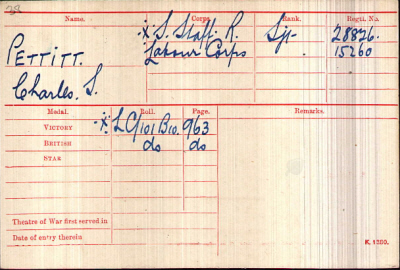 Name. Corps. Rank. Regtl. No.
PETTITT. X S. Staff. R. Sjt 28826.
Labour Corps " 15260
Charles. S.
Medal. Roll. Page. Remarks.
VICTORY X LC/101 B10. 963
BRITISH do do
STAR
Theatre of War first served in
Date of entry therein
K. 1380.